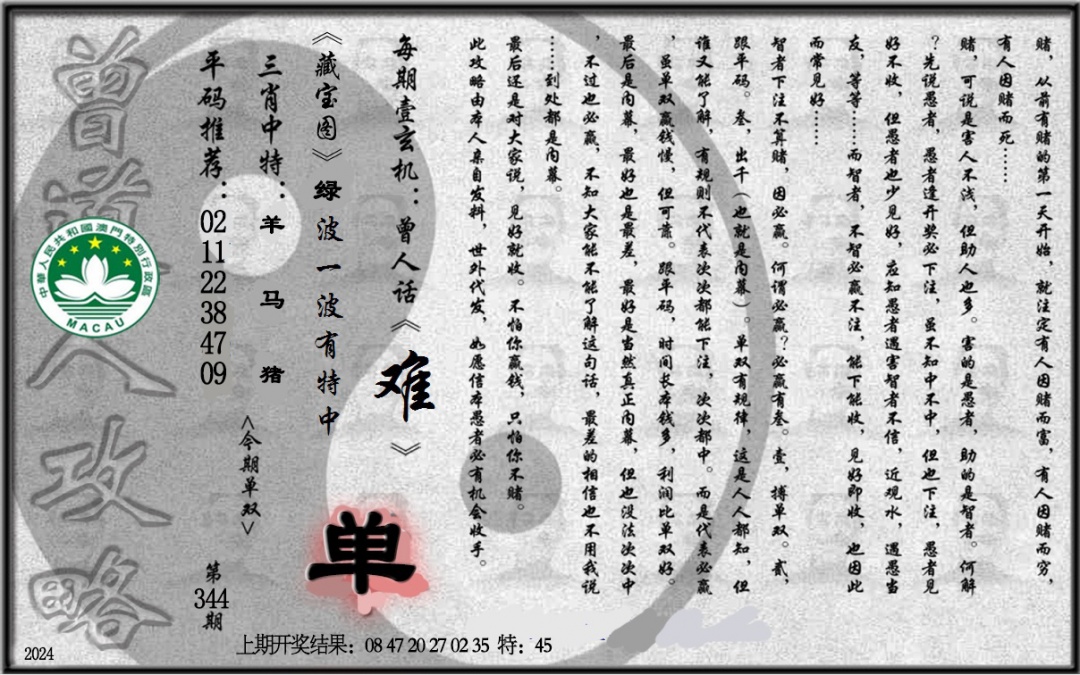 赌，从前有赌的第一天开始，就注定有人因赌而富，有人因赌而穷，
有人因赌而死……
赌，可说是害人不浅，但助人也多。害的是愚者，助的是智者。何解
？先说愚者，愚者逢开奖必下注，虽不知中不中，但也下注，愚者见
好不收，但愚者也少见好，应知愚者遇害智者不信，近观水，遇愚当
友，等等……而智者，不智必赢不注，能下能收，见好即收，也因此
而常见好……
智者下注不算赌，因必赢。何谓必赢？必赢有叁。壹，搏单双。贰，
跟平码。叁，出千（也就是内幕）。单双有规律，这是人人都知，但
谁又能了解，有规则不代表次次都能下注，次次都中。而是代表必赢
，虽单双赢钱慢，但可靠。跟平码，时间长本钱多，利润比单双好。
最后是内幕，最好也是最差，最好是当然真正内幕，但也没法次次中
，不过也必赢，不知大家能不能了解这句话，最差的相信也不用我说
……到处都是内幕。
最后还是对大家说，见好就收。不怕你赢钱，只怕你不赌。
此攻略由本人亲自发料，世外代发，如愿信本愚者必有机会收手。
每期壹玄机：曾人话《难》
《藏宝图》绿波一波有特中
单
三肖中特：羊 马 猪
<今期单双>
平码推荐：02 11 22 38 47 09
第344期
曾道人攻略
中華人民共和國澳門特別行政區
MACAU
上期开奖结果：08 47 20 27 02 35 特：45
2024